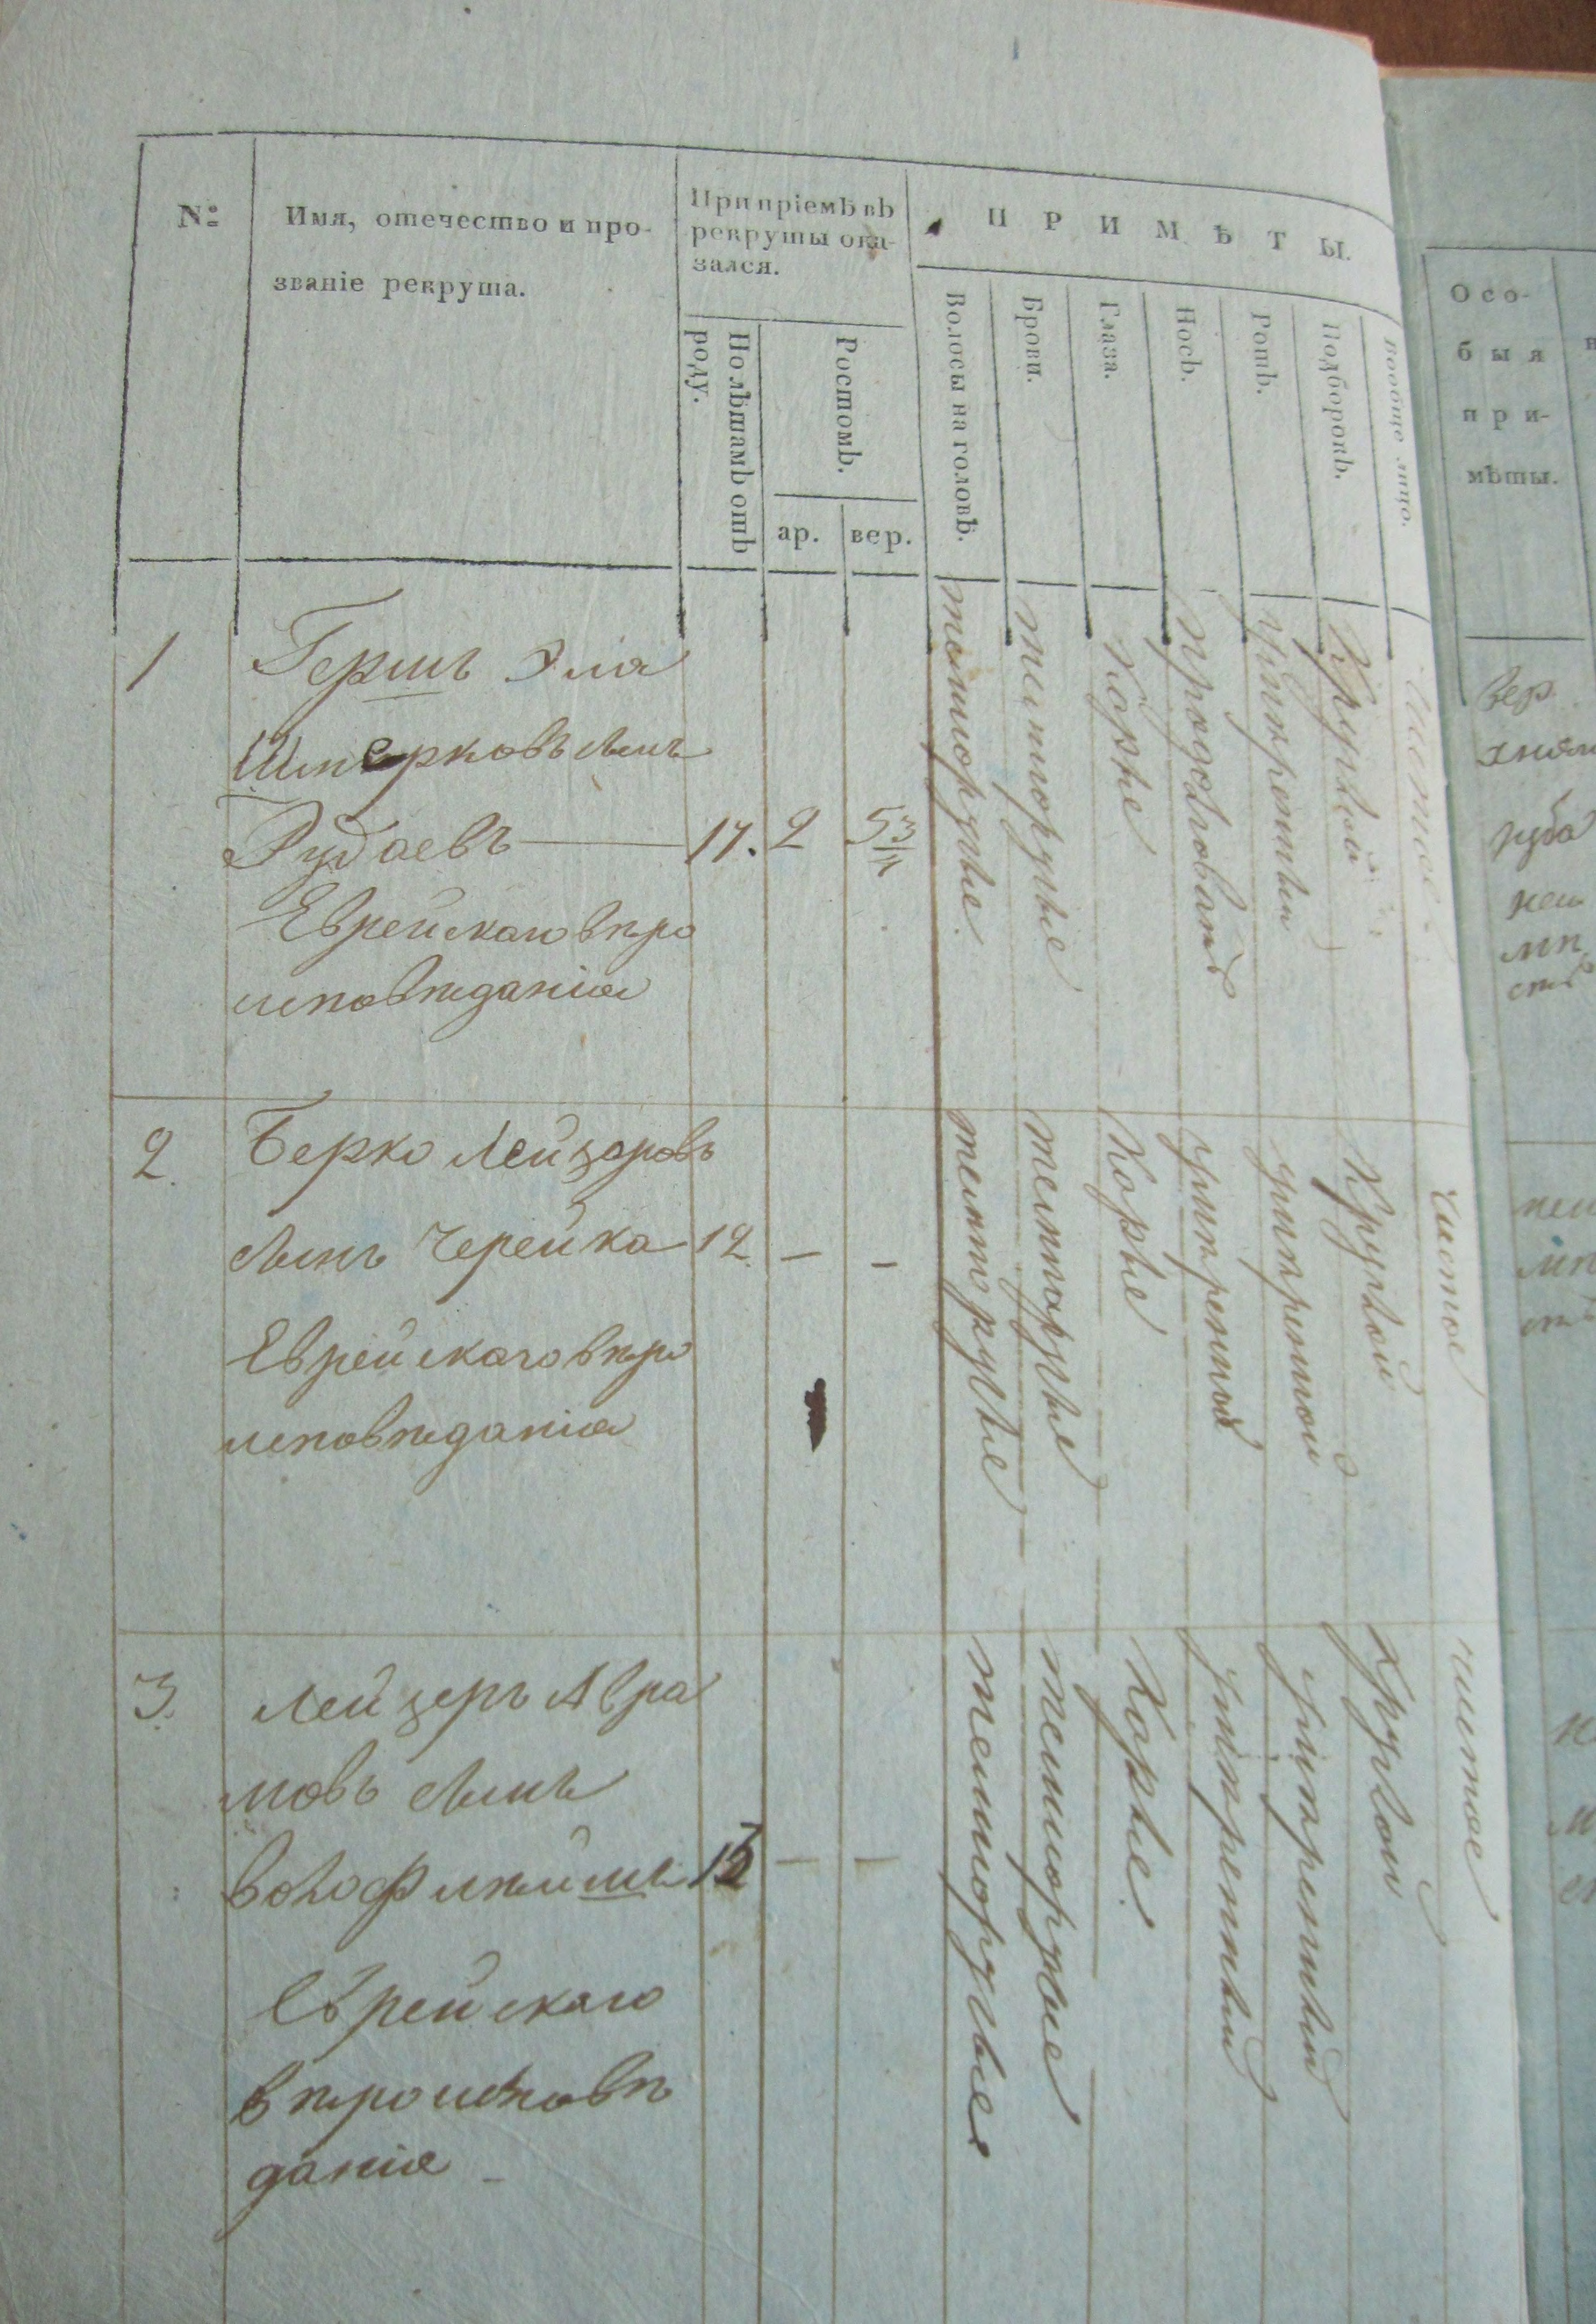 №
Имя, отечество и про-
званіе рекрута.
При пріемѣ въ
рекруты ока-
зался.
По лѣтамъ отъ
роду.
Ростомъ.
ар.
вер.
ПРИМѢТЫ.
Волосы на головѣ.
Брови.
Глаза.
Носъ.
Ротъ.
Подборокъ.
вообще лицо.
Осо-
быя
при-
мѣты.
1
Гершъ Эля
сынъ
Рудаевъ 17. 2 5 3/4
Еврейскаго вѣро
исповѣданія
темнорусые.
темнорусые
Каріе
продолговатъ
умѣренный
Круглой
чистое
вер
губа
2.
Берко Лейзаровъ
сынъ Черейка 12. – –
Еврейскаго вѣро
исповѣданія
темнорусые
темнорусые
Каріе
умѣренной
умѣренной
Круглой
чистое
3.
Лейзеръ Авра
мовъ сынъ
– –
Еврейскаго
вѣроисповѣ
данія
темнорусые
темнорусые
Каріе.
умѣренный
умѣренный
Круглой
чистое